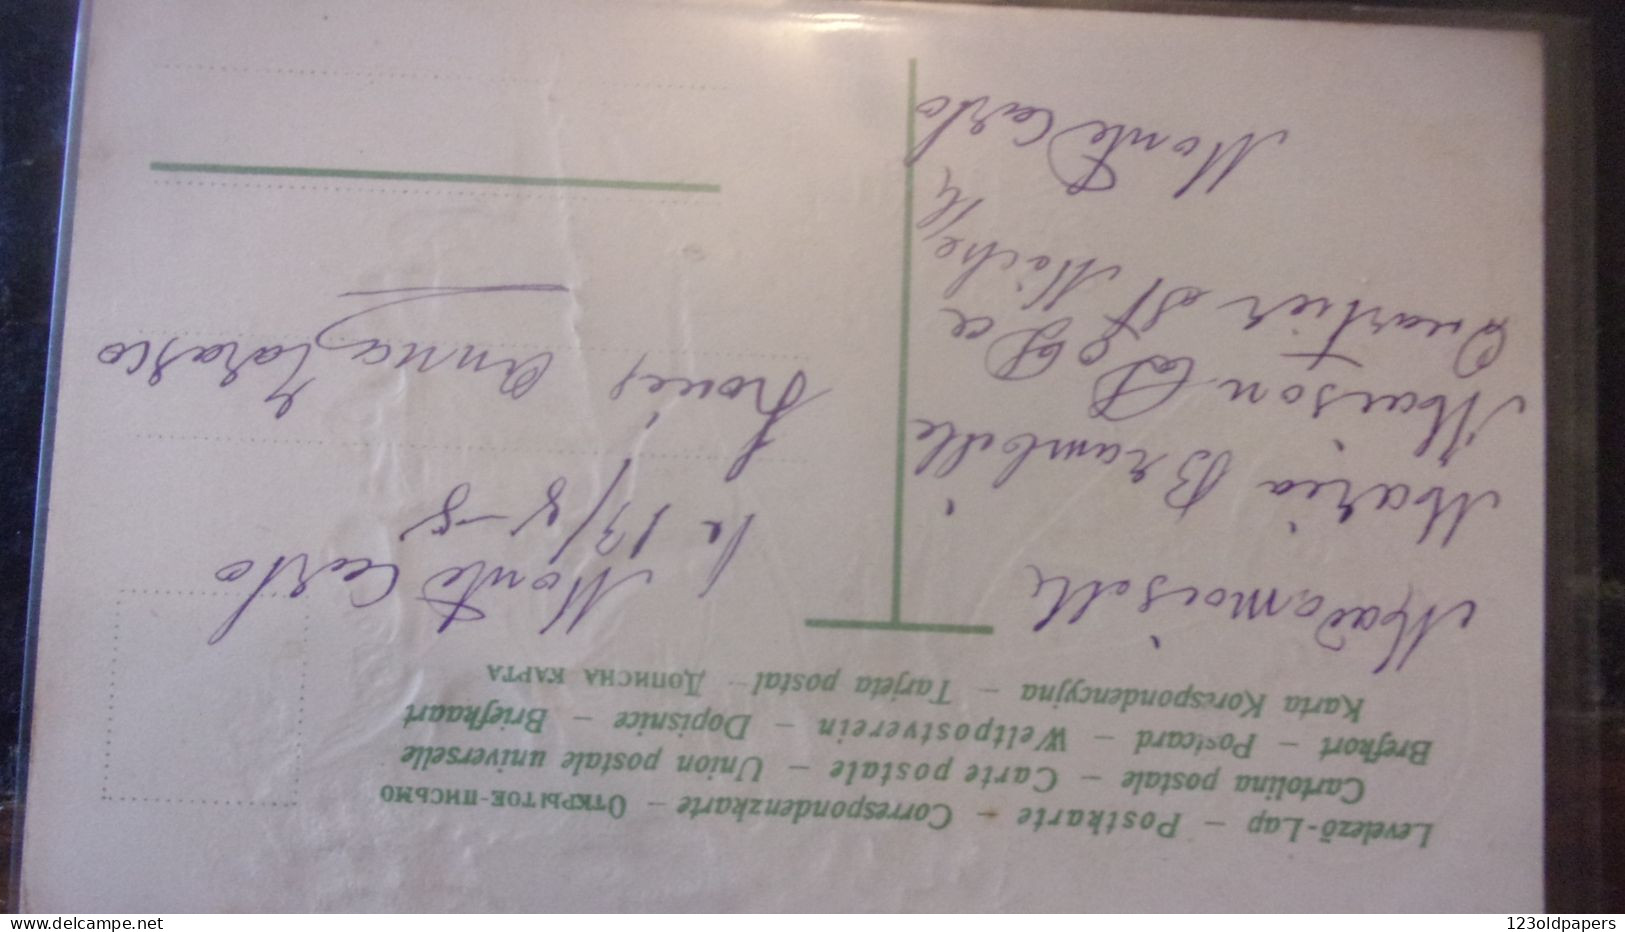 Levelező-Lap – Postkarte – Correspondenzkarte – Открытое-письмо
Cartolina postale – Carte postale – Union postale universelle
Brefkort – Postcard – Weltpostverein – Dopisnice – Briefkaart
Karta Korespondencyjna – Tarjeta postal – Дописна карта
Mademoiselle
Maria Brambille
Maison
Quartier St Michel
Monte Carlo
Monte Carlo
le 13/8-8
Anna Tarasco
delcampe.net
123oldpapers